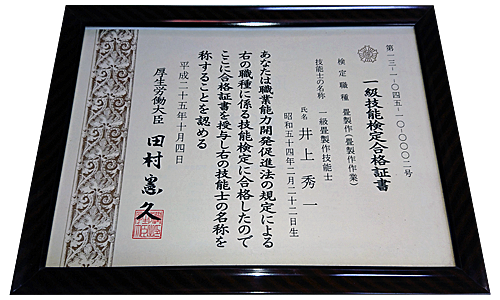 第一三-一-〇四五-一〇-〇〇〇二号
一級技能検定合格証書
検定職種 畳製作(畳製作作業)
技能士の名称 一級畳製作技能士
氏名 井上秀一
昭和五十四年二月二十二日生
あなたは職業能力開発促進法の規定による
右の職種に係る技能検定に合格したので
ここに合格証書を授与し右の技能士の名称を
称することを認める
平成二十五年十月四日
厚生労働大臣 田村憲久